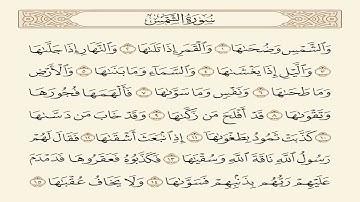 سُورَةُ الشَّمْسِ
وَالشَّمْسِ وَضُحَىٰهَا ١ وَالْقَمَرِ إِذَا تَلَىٰهَا ٢ وَالنَّهَارِ إِذَا جَلَّىٰهَا
٣ وَالَّيْلِ إِذَا يَغْشَىٰهَا ٤ وَالسَّمَآءِ وَمَا بَنَىٰهَا ٥ وَالْأَرْضِ
وَمَا طَحَىٰهَا ٦ وَنَفْسٍ وَمَا سَوَّىٰهَا ٧ فَأَلْهَمَهَا فُجُورَهَا
وَتَقْوَىٰهَا ٨ قَدْ أَفْلَحَ مَن زَكَّىٰهَا ٩ وَقَدْ خَابَ مَن دَسَّىٰهَا
١٠ كَذَّبَتْ ثَمُودُ بِطَغْوَىٰهَا ١١ إِذِ انۢبَعَثَ أَشْقَىٰهَا ١٢ فَقَالَ لَهُمْ
رَسُولُ اللَّهِ نَاقَةَ اللَّهِ وَسُقْيَٰهَا ١٣ فَكَذَّبُوهُ فَعَقَرُوهَا فَدَمْدَمَ
عَلَيْهِمْ رَبُّهُم بِذَنۢبِهِمْ فَسَوَّىٰهَا ١٤ وَلَا يَخَافُ عُقْبَٰهَا ١٥